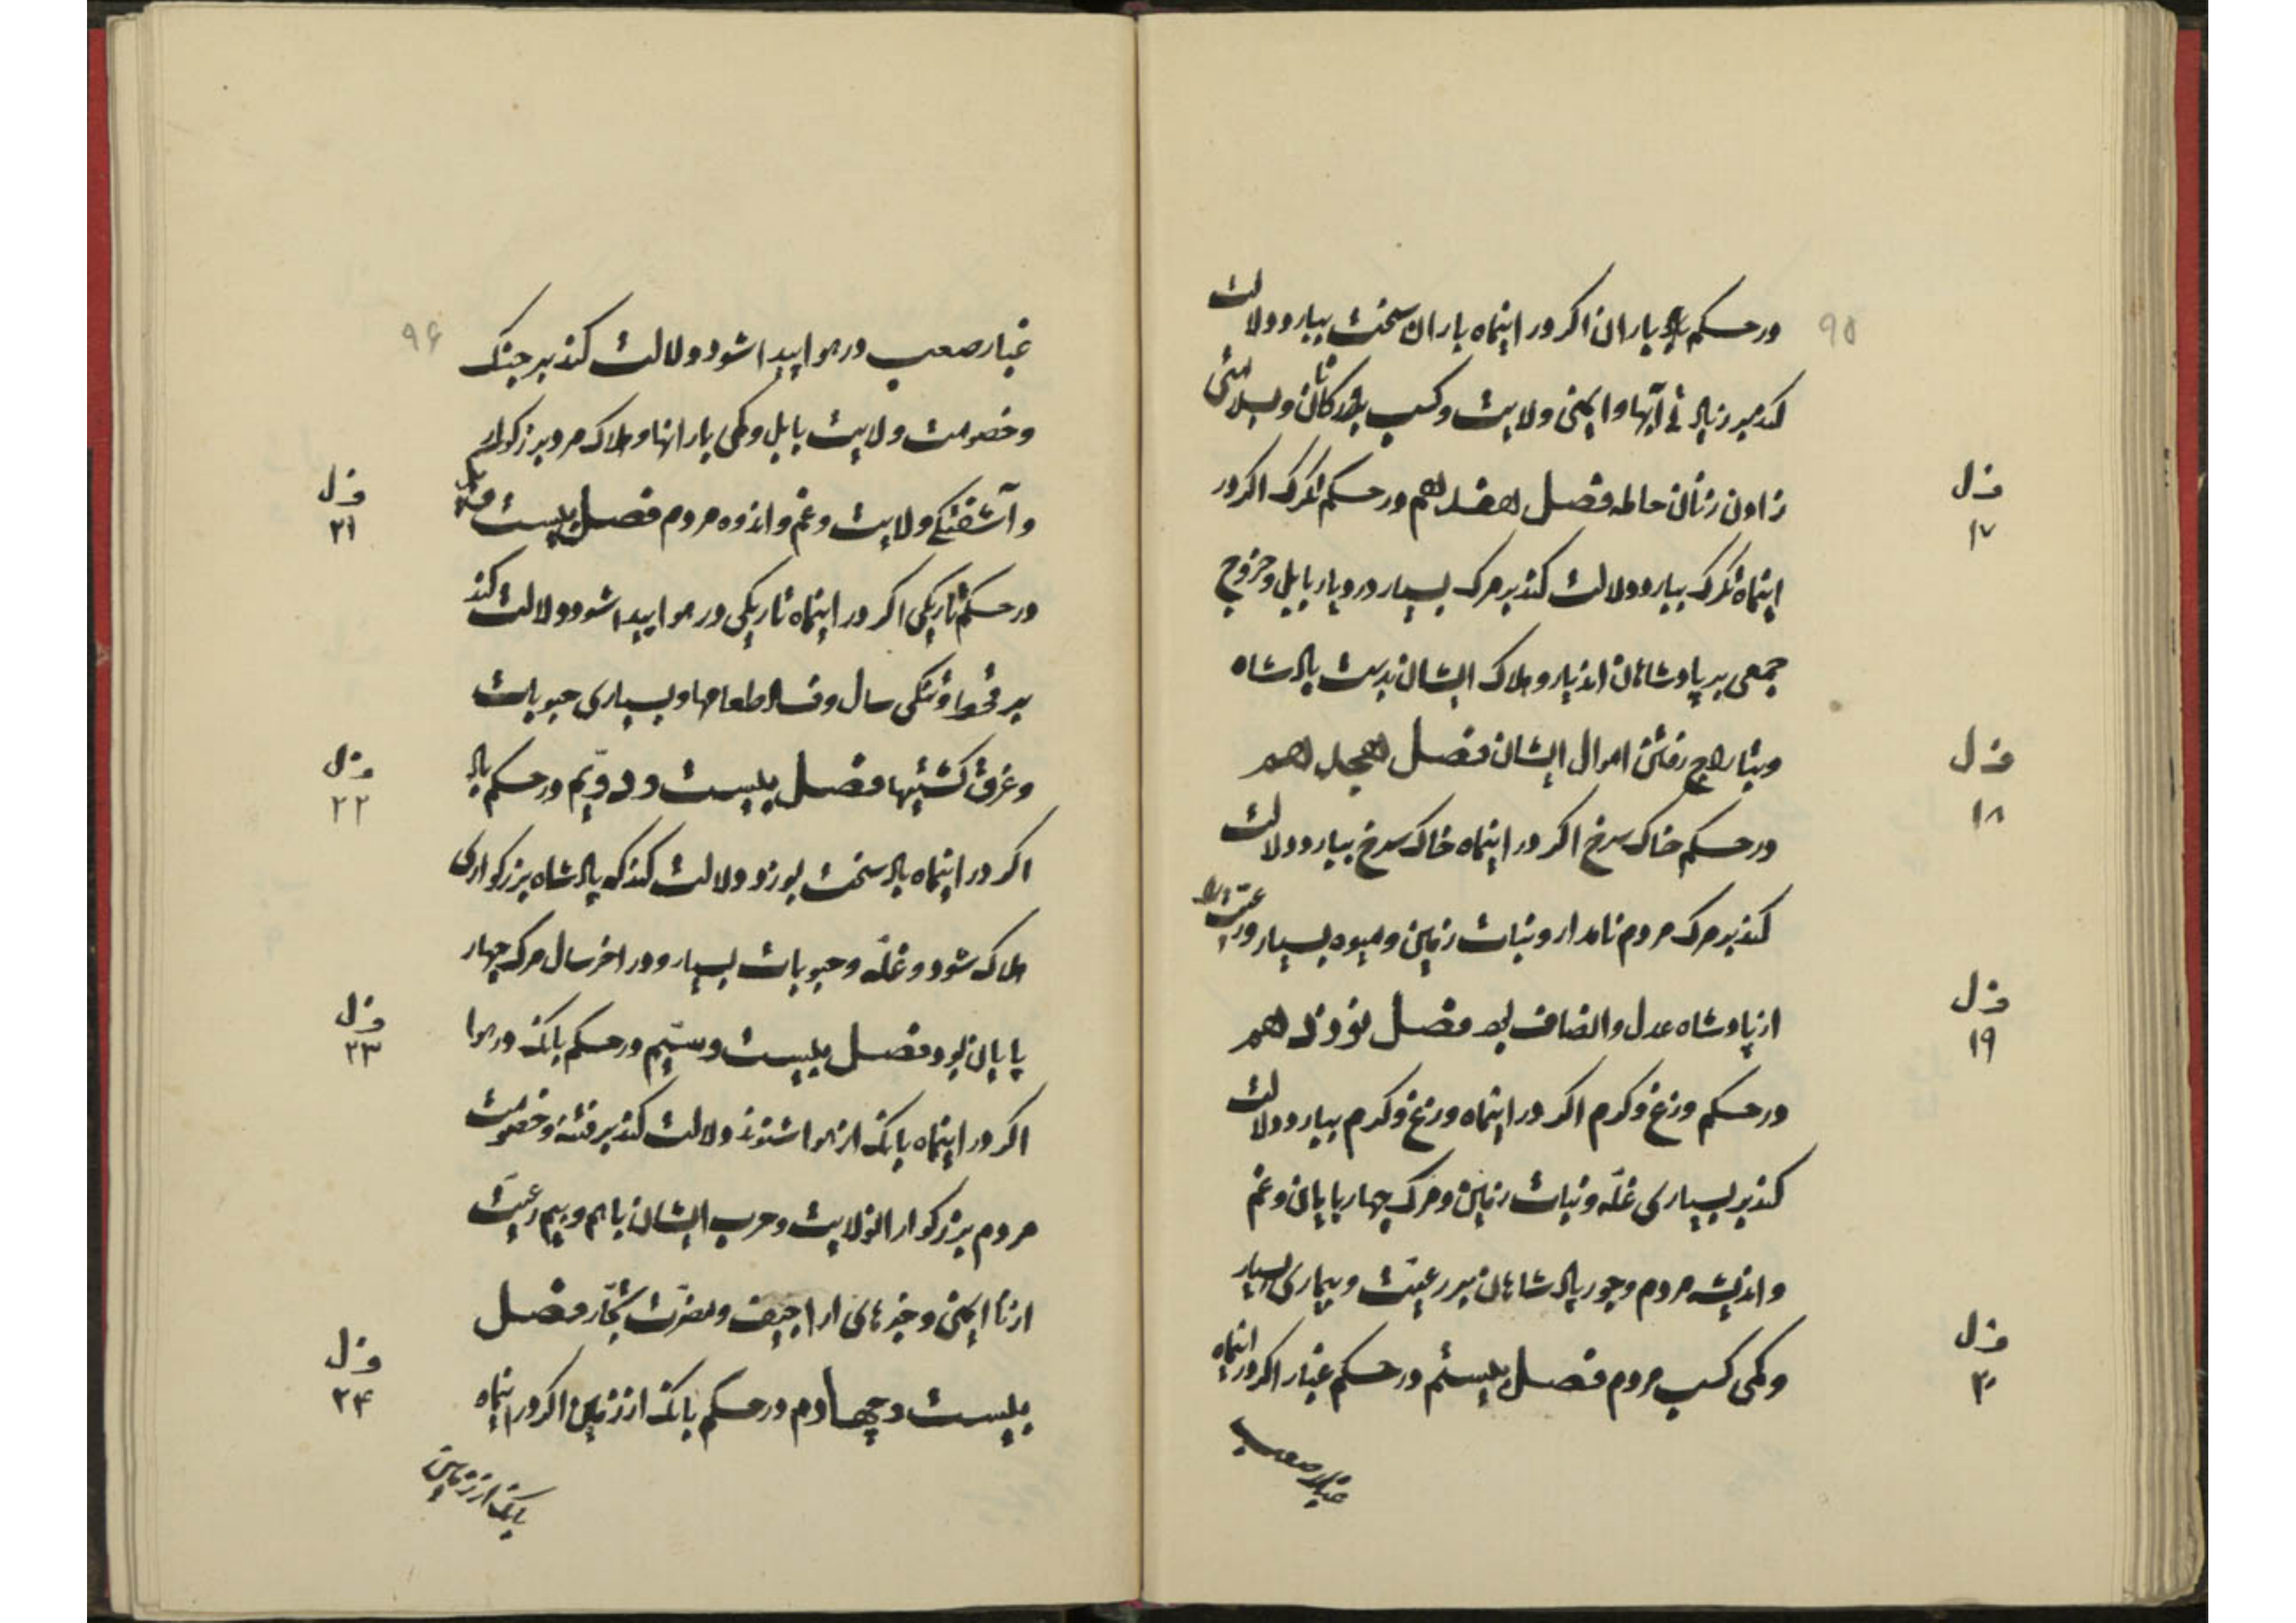 ۹۵
در حکم باران اکر در اینماه باران سخت ببارد دلالت
کند بر زیادتی آبها و ایمنی ولایت و کسب بازرکانان و بسلامتی
زادن زنان حامله فصل هفدهم در حکم تکرک اکر در
اینماه تکرک ببارد دلالت کند بر مرک بسیار در دیار بابل و خروج
جمعی بر پادشاهان اندیار و هلاک ایشان بدست پادشاه
و بتاراج رفتن اموال ایشان فصل هجدهم
در حکم خاک سرخ اکر در اینماه خاک سرخ ببارد دلالت
کند بر مرک مردم نامدار و نبات زمین و میوه بسیار و رعیت را
از پادشاه عدل و انصاف بود فصل نوزدهم
در حکم وزغ و کژدم اکر در اینماه وزغ و کژدم ببارد دلالت
کند بر بسیاری غلّه و نبات زمین و مرک چهارپایان و غم
و اندیشه مردم و جور پادشاهان بر رعیّت و بیماری بسیار
و کمی کسب مردم فصل بیستم در حکم غبار اکر در اینماه
غبار صعب
فصل
۱۷
فصل
۱۸
فصل
۱۹
فصل
۲۰
۹۶
غبار صعب در هوا پیدا شود دلالت کند بر جنک
و خصومت ولایت بابل و کمی بارانها و هلاک مرد بزرکوار
و آشفتکی ولایت و غم و اندوه مردم فصل بیست و یکم
در حکم تاریکی اکر در اینماه تاریکی در هوا پیدا شود دلالت کند
بر قحط و تنکی سال و فساد طعامها و بسیاری حبوبات
و غرق کشتیها فصل بیست و دویّم در حکم باد
اکر در اینماه باد سخت بوزد دلالت کند که پادشاه بزرکواری
هلاک شود و غلّه و حبوبات بسیار و در اخر سال مرک چهار
پایان بود فصل بیست و سیّم در حکم بانک در هوا
اکر در اینماه بانک از هوا شنوند دلالت کند بر فتنه و خصومت
مردم بزرکوار انولایت و حرب ایشان باهم و بیم رعیّت
از نا ایمنی و خبرهای اراجیف و مضرّت تجّار فصل
بیست و چهارم در حکم بانک از زمین اکر در اینماه
بانک از زمین
فصل
۲۱
فصل
۲۲
فصل
۲۳
فصل
۲۴